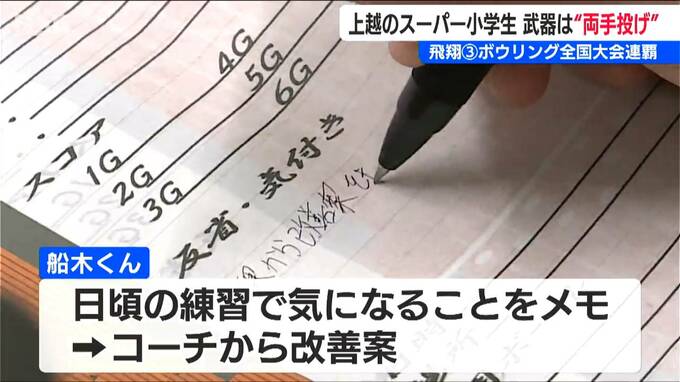 上越のスーパー小学生 武器は“両手投げ”
飛翔③ボウリング全国大会連覇
スコア
1G
2G
3G
4G
5G
6G
反省・気付き
から改善案
船木くん
日頃の練習で気になることをメモ
➡コーチから改善案